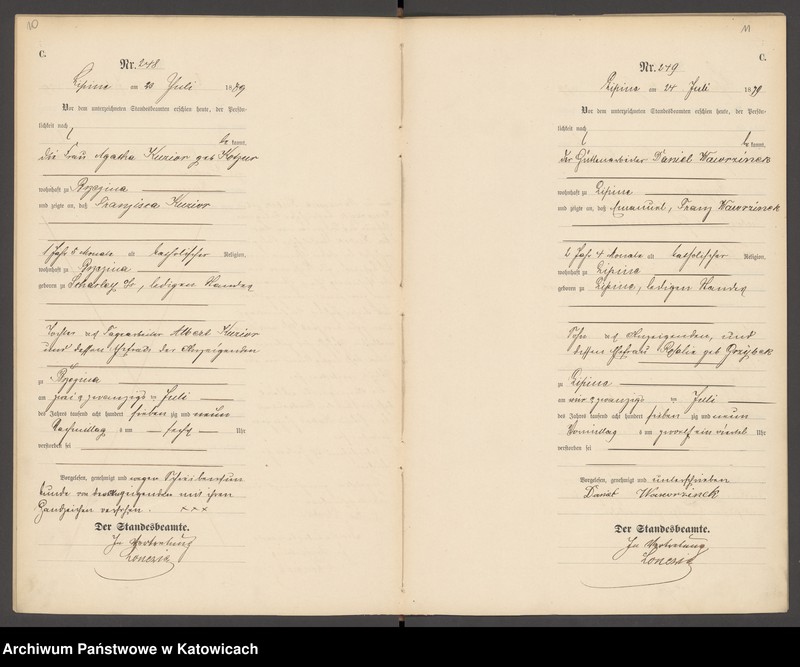 10
C.
Nr. 248
Lipine am 23 Juli 1879
Vor dem unterzeichneten Standesbeamten erschien heute, der Persön-
lichkeit nach
kannt,
die Frau Agatha Kuzior geb Kotzur
wohnhaft zu
und zeigte an, daß Franziska Kuzior
1 Jahr 5 Monate alt katholischer Religion,
wohnhaft zu
geboren zu Scharley O/S, ledigen Standes
Tochter des Tagearbeiter Albert Kuzior
und dessen Ehefrau der Anzeigenden
zu
am zwei & zwanzigs ten Juli
des Jahres tausend acht hundert sieben zig und neun
Nachmittag s um sechs Uhr
verstorben sei
Vorgelesen, genehmigt und wegen Schreibensun
kunde von der Anzeigenden mit ihren
Handzeichen versehen. xxx
Der Standesbeamte.
In Vertretung
11
C.
Nr. 249
Lipine am 24 Juli 1879
Vor dem unterzeichneten Standesbeamten erschien heute, der Persön-
lichkeit nach
be kannt,
der Hüttenarbeiter Daniel Wawrzinek
wohnhaft zu Lipine
und zeigte an, daß Emanuel, Franz Wawrzinek
Jahr 4 Monate alt katholischer Religion,
wohnhaft zu Lipine
geboren zu Lipine, ledigen Standes
Sohn des Anzeigenden, und
dessen Ehefrau Rosalie geb
zu Lipine
am vier & zwanzigs ten Juli
des Jahres tausend acht hundert sieben zig und neun
Vormittag s um zwölf ein viertel Uhr
verstorben sei
Vorgelesen, genehmigt und unterschrieben
Daniel Wawrzinek
Der Standesbeamte.
In Vertretung
Archiwum Państwowe w Katowicach